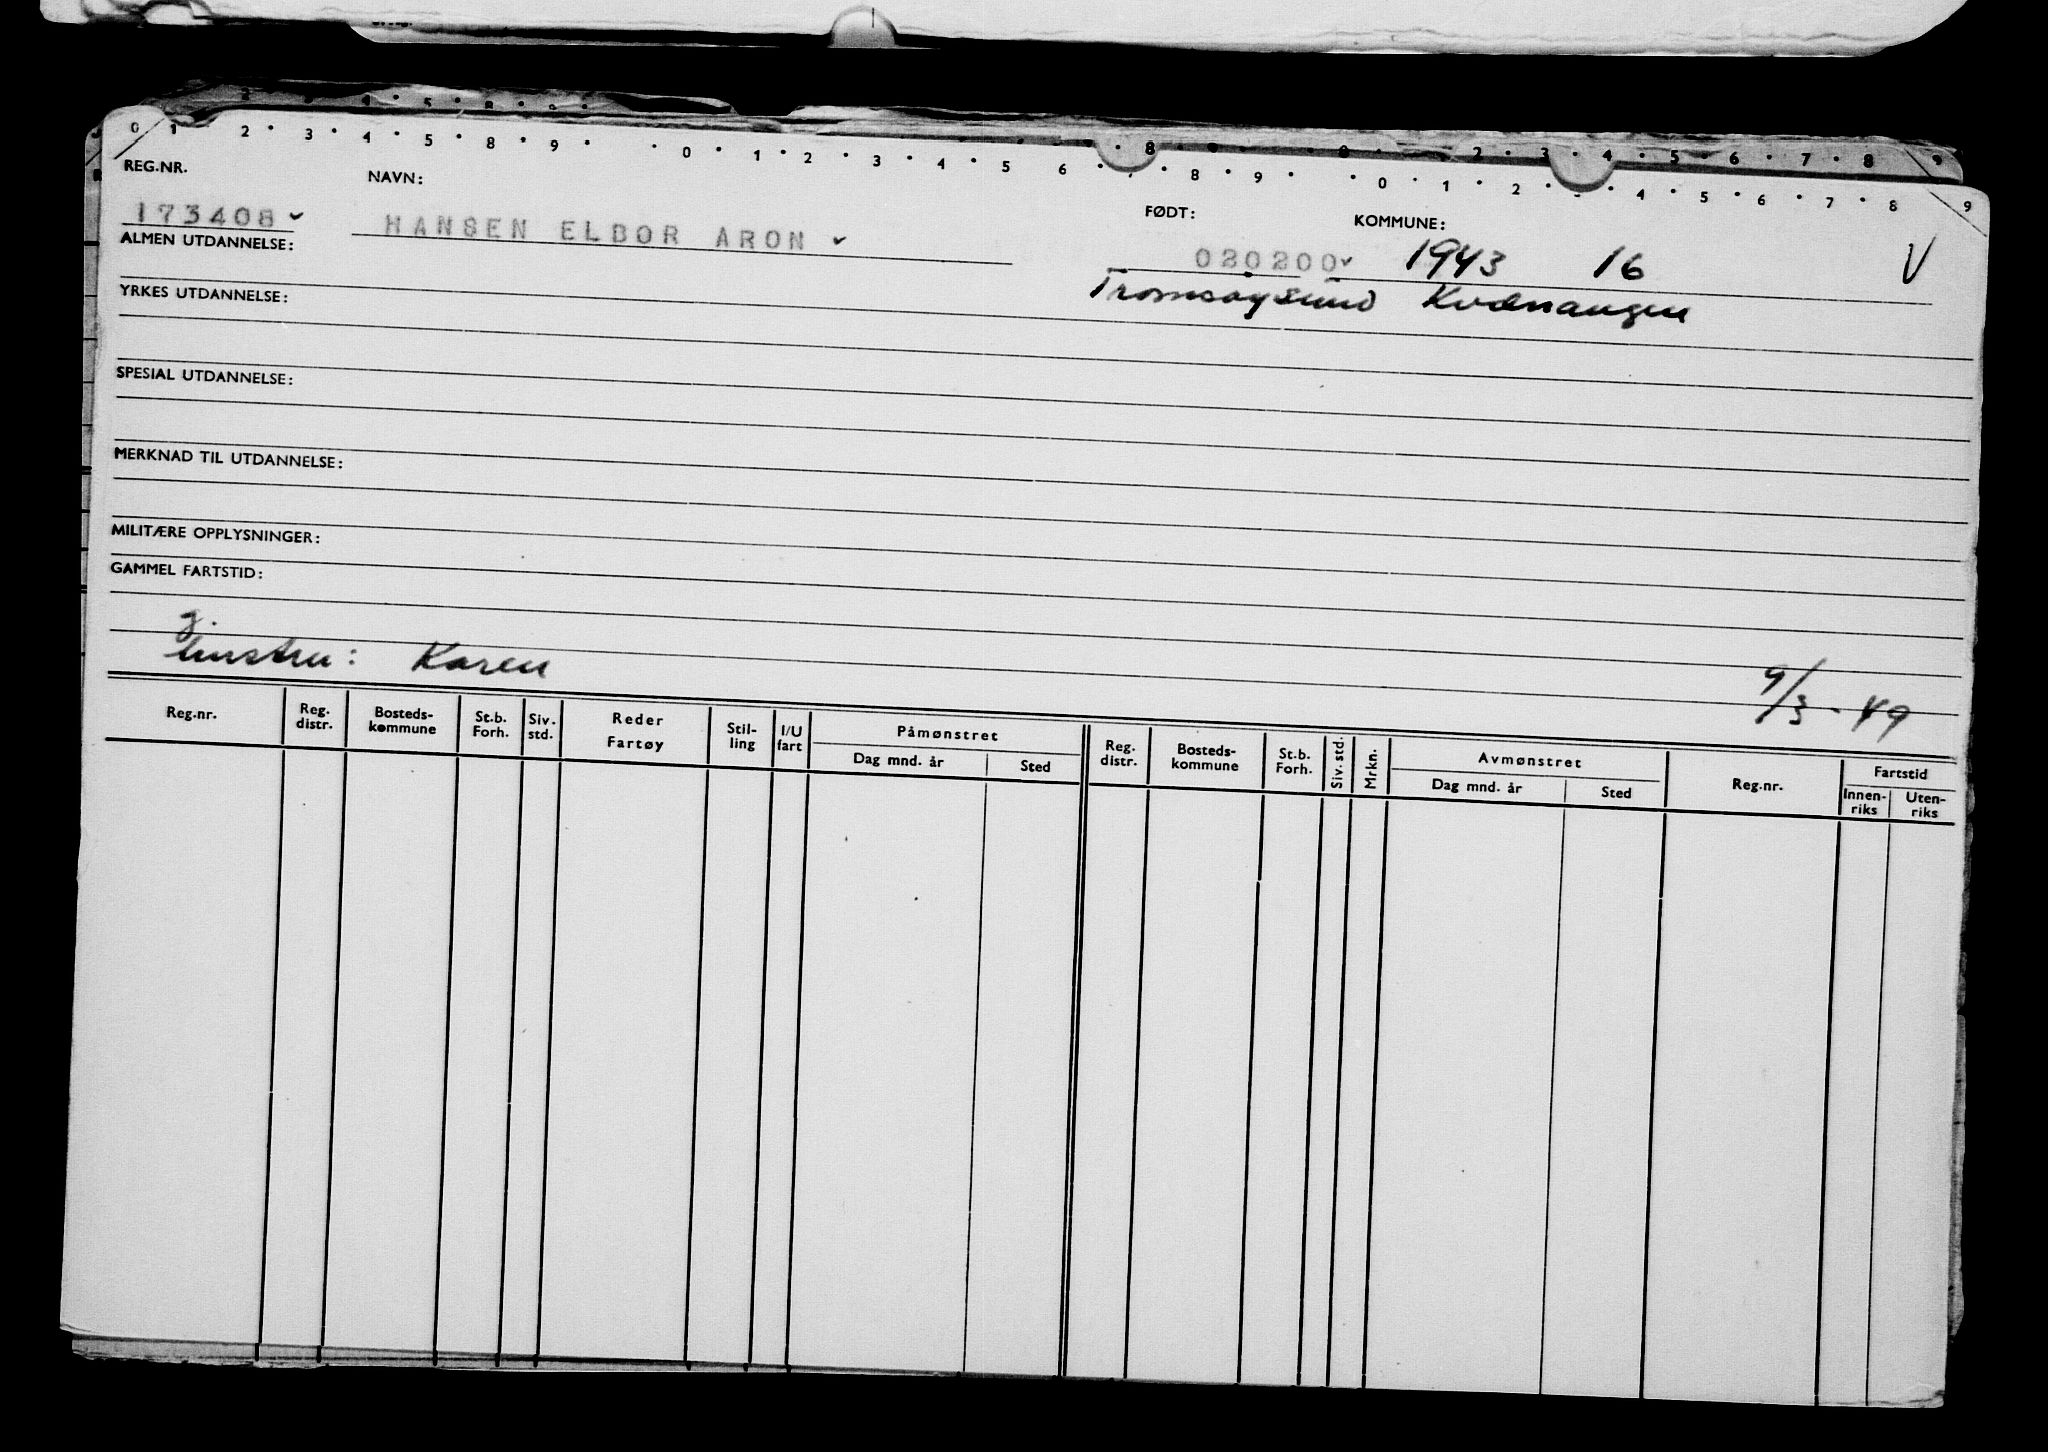 0 1 2 · 3 · 4 · 5 · 8 · 9 · · 0 · 1 · 2 · 3 · 4 · 5 6 · · 8 · 9 · · 0 · 1 · 2 · · 4 · 5 · 6 · 7 · 8 9
REG.NR. NAVN: FØDT: KOMMUNE:
173408 HANSEN ELBOR ARON 020200 1943 16 V
ALMEN UTDANNELSE:
Tromsøysund Kvænangen
YRKES UTDANNELSE:
SPESIAL UTDANNELSE:
MERKNAD TIL UTDANNELSE:
MILITÆRE OPPLYSNINGER:
GAMMEL FARTSTID:
g.
hustru: Karen
9/3 - 49
Reg.nr. Reg. distr. Bosteds- kommune St.b. Forh. Siv. std. Reder Fartøy Stil- ling I/U fart Påmønstret Dag mnd. år Sted Reg. distr. Bosteds- kommune St.b. Forh. Siv. std. Mrkn. Avmønstret Dag mnd. år Sted Reg.nr. Fartstid Innen- riks Uten- riks